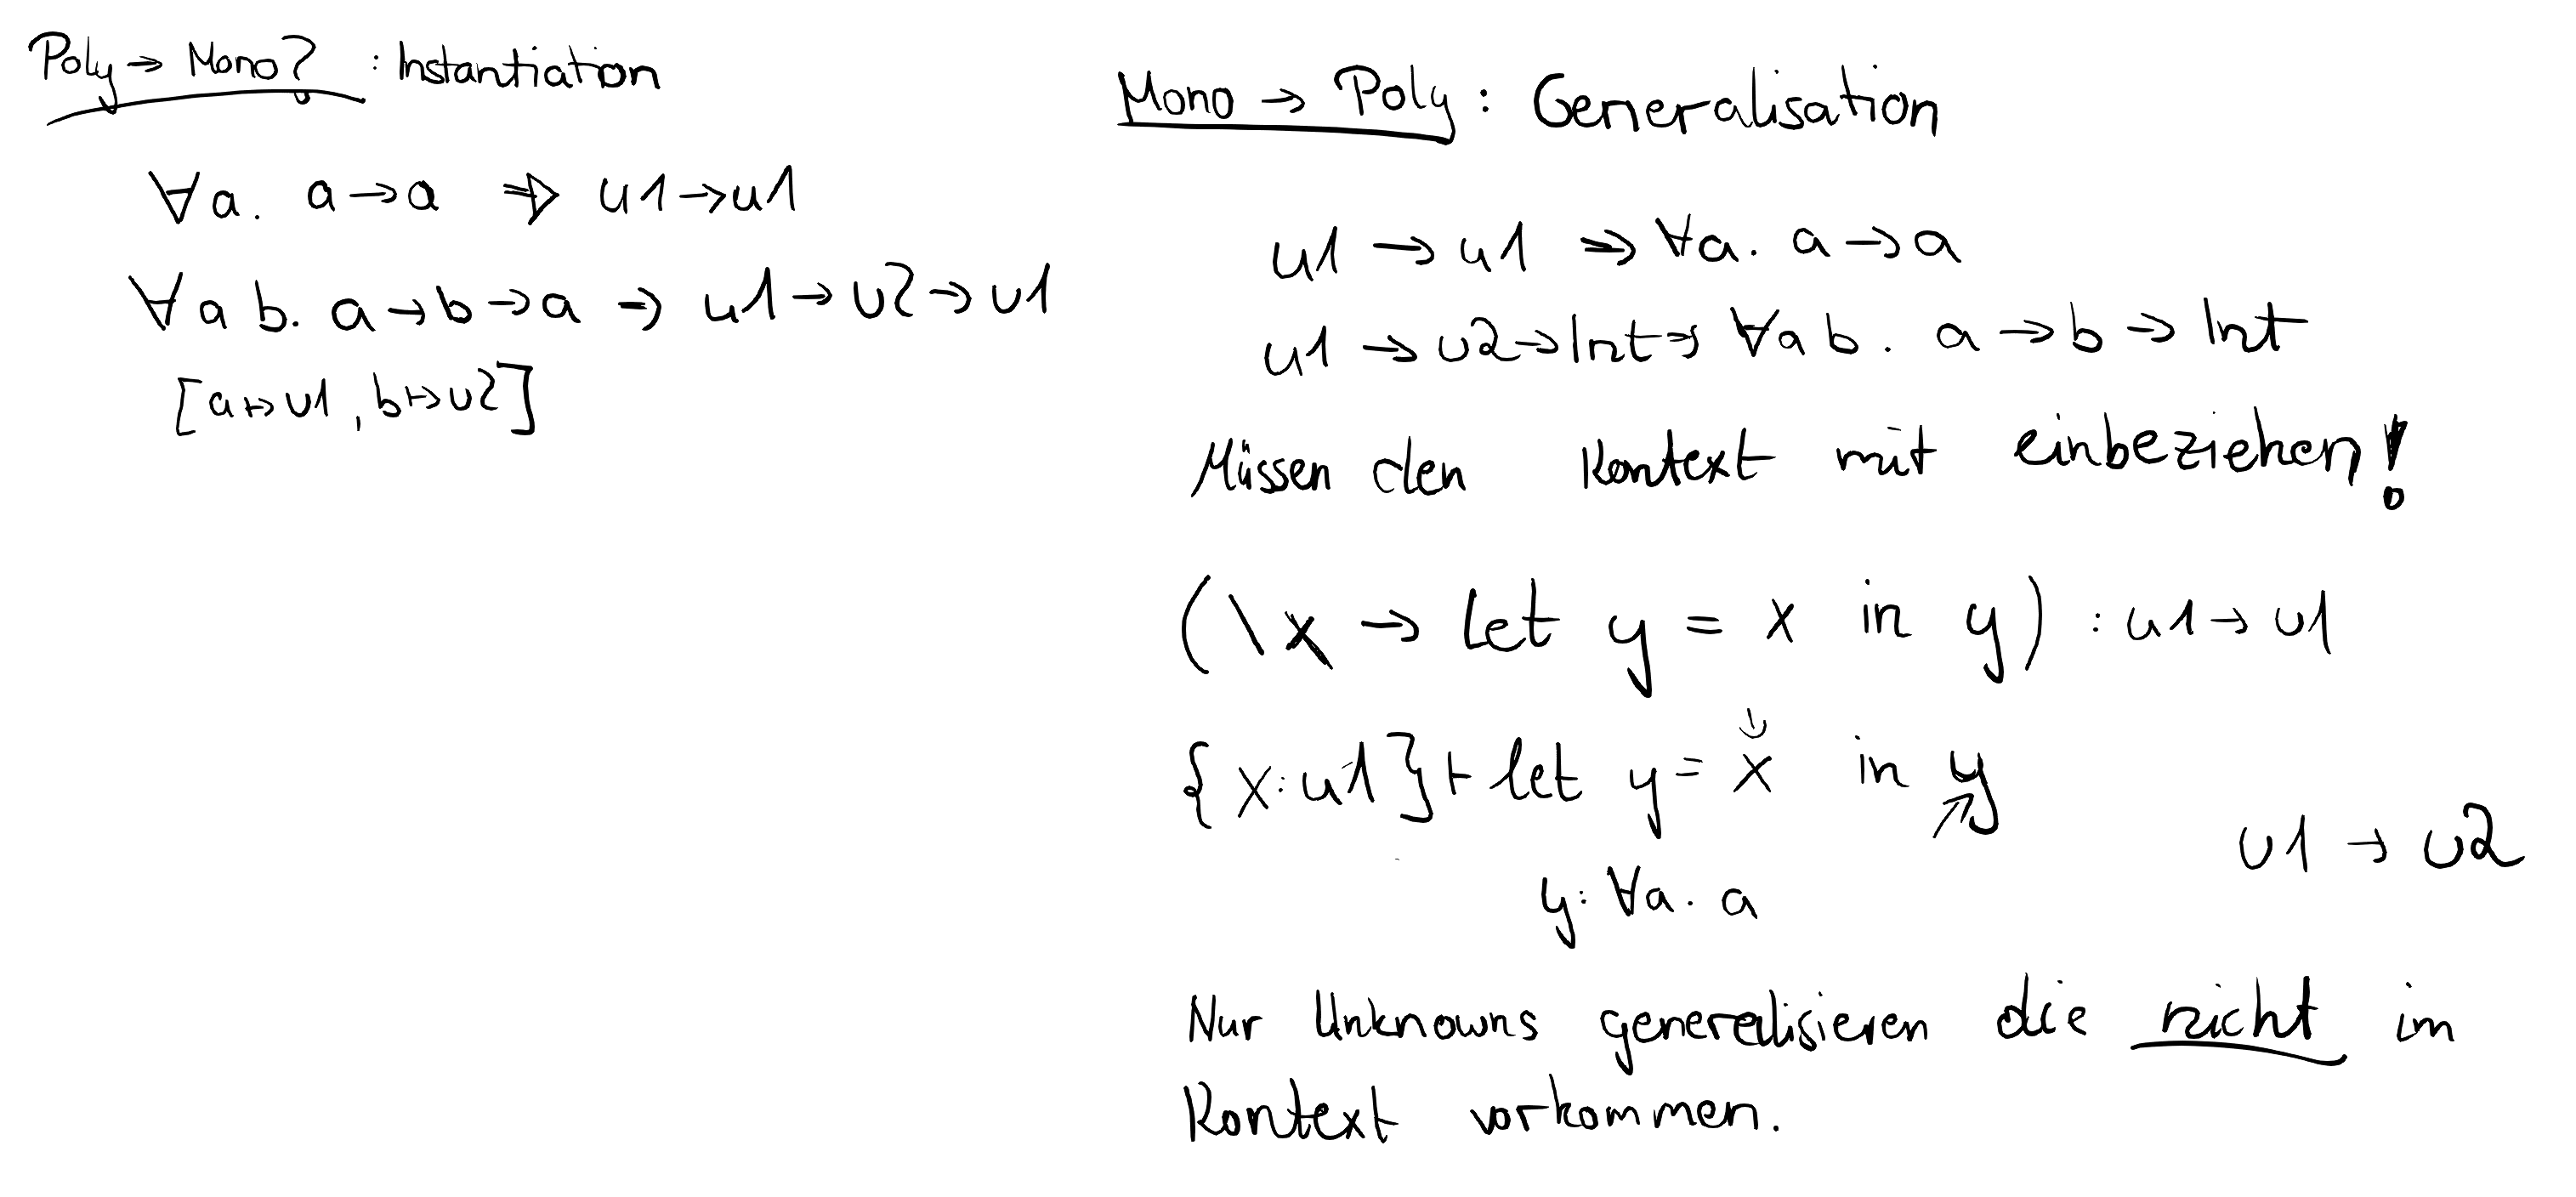 Poly → Mono? : Instantiation
∀a. a → a ⇒ u1 → u1
∀ a b. a → b → a ⇒ u1 → u2 → u1
[a ↦ u1, b ↦ u2]
Mono → Poly : Generalisation
u1 → u1 ⇒ ∀a. a → a
u1 → u2 → Int ⇒ ∀a b. a → b → Int
Müssen den Kontext mit einbeziehen!
(\x → let y = x in y) : u1 → u1
{x: u1} ⊢ let y = x in y
u1 → u2
y: ∀a. a
Nur Unknowns generalisieren die nicht im
Kontext vorkommen.